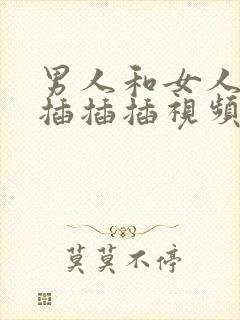 男人和女人
插插插視頻
莫莫不停